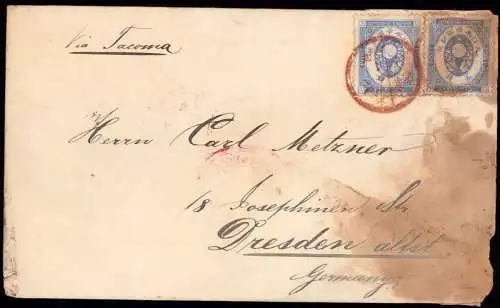 Via Tacoma
Herrn Carl Metzner
18 Josephinen Str
Dresden altst
Germany